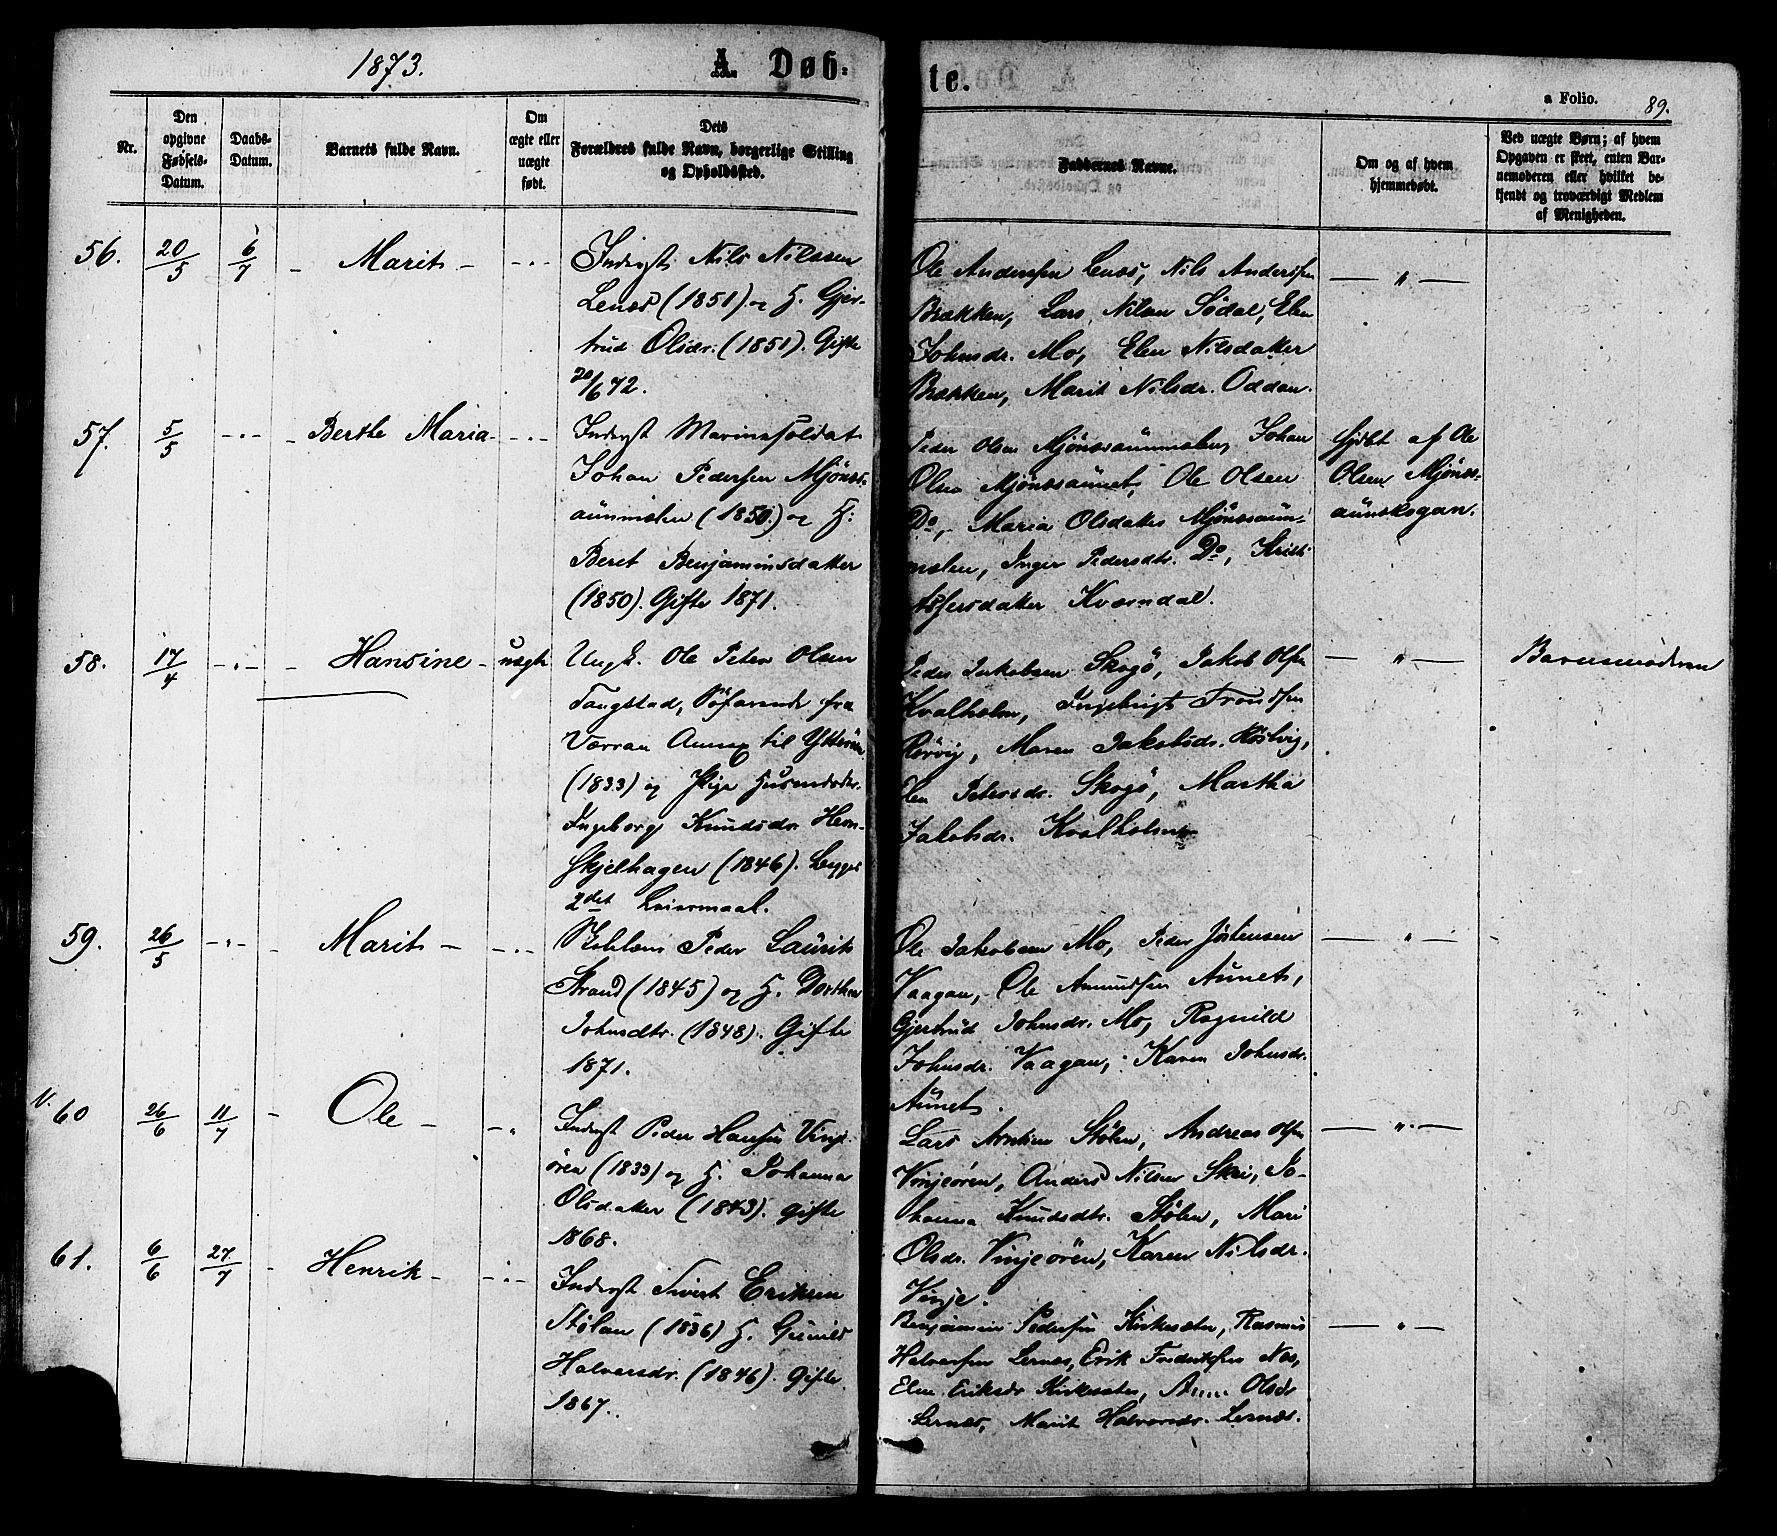 1873.
A Døb-
te.
a Folio.
89.
Nr.
Den
opgivne
Fødsels-
Datum.
Daabs-
Datum.
Barnets fulde Navn.
Om
ægte eller
uægte
født.
Dets
Forældres fulde Navn, borgerlige Stilling
og Opholdssted.
Faddernes Navne.
Om og af hvem
hjemmedøbt.
Ved uægte Børn; af hvem
Opgaven er skeet, enten Bar-
nemoderen eller hvilket be-
kjendt og troværdigt Medlem
af Menigheden.
56.
20/5
6/7
Marit
Inderst Nils Nilssen
Lenes (1851) og H. Gjer-
trud Olsdr. (1851). Gifte
20/6 72.
Ole Anderssen Lenes, Nils Anderssen
Brækken, Lars Nilsen Södal, Elen
Johnsdr. Mo, Elen Nilsdatter
Brækken, Marit Nilsdr. Oddan.
57.
5/5
Berthe Maria
Inderst Marinesoldat
Johan Pedersen Mjönes-
aunmælen (1850) og H:
Beret Benjaminsdatter
(1850). Gifte 1871.
Peder Olsen Mjönesaunmælen, Johan
Olsen Mjönesaunet, Ole Olsen
Do, Maria Olsdatter Mjönesaun-
mælen, Inger Pedersdtr. Do, Krist-
offersdatter Kværndal.
Hjdbt af Ole
Olsen Mjönes-
aunskogan.
58.
17/4
Hansine
uægte
Ungk. Ole Peter Olsen
Tangstad, Söfarende fra
Værran Annex til Ytterøen
(1833) og Pige Husmdotr.
Ingeborg Knudsdr. Hem-
skjelhagen (1846). Begges
2det Leiermaal.
Peder Jakobsen Skogö, Jakob Olsen
Kvalholm, Ingebrigt Trondsen
Rörvig, Maren Jakobsdr. Röstvig,
Elen Petersdr. Skogö, Martha
Jakobsdr. Kvalholmen
Barnemoderen
59.
26/5
Marit
Peder Laurits
Strand (1845) og H. Dorthea
Johnsdtr. (1848). Gifte
1871.
Ole Jakobsen Mo, Peder Jörgensen
Vaagan, Ole Amundsen Aunet,
Gjertrud Johnsdr. Mo, Ragnild
Johnsdr. Vaagan, Karen Johnsdr.
Aunet.
N.
60
26/6
11/7
Ole
Inderst Peder Hansen Vinje-
ören (1833) og H. Johanna
Olsdatter (1843). gifte
1868.
Lars Arntsen Stölen, Andreas Olsen
Vinjeören, Anders Nilsen Skei, Jo-
hanna Knudsdtr. Stölen, Mari
Olsdr. Vinjeören, Karen Nilsdr.
Vinje.
61.
6/6
27/7
Henrik
Inderst Sivert Eriksen
Stölan (1836) H. Gunild
Halvorsdr. (1846). Gifte
1867.
Benjamin Pedersen Kirkesæter, Rasmus
Halvorsen Lernes, Erik Fredriksen Næs,
Elen Eriksdr Kirkesæter, Anne Olsdr
Lernes, Marit Halvorsdr. Lernes.